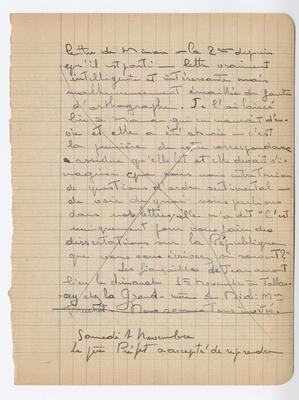 lettre de Manon — la 2ème depuis
qu'il est parti — lettre vraiment
intelligente et intéressante mais
malheureusement émaillée de fautes
d'orthographe. Je l'ai laissé
lire à Maman qui en mourait d'en-
vie et elle a été — c'est
la première de notre correspondance
assidue qu'elle lit et elle devait s'i-
maginer que nous nous entretenions
de questions d'ordre sentimental —
de voir de quoi nous parlions
dans nos lettres elle m'a dit "C'est
uniquement pour vous faire des
dissertations sur la République
que vous vous écrivez si souvent?"
Les fiançailles de auront
lieu le dimanche 1er novembre à
chez la Grand-mère de Midi Mme
Nous sommes tous invités.
Samedi Novembre
Le père a accepté de reprendre